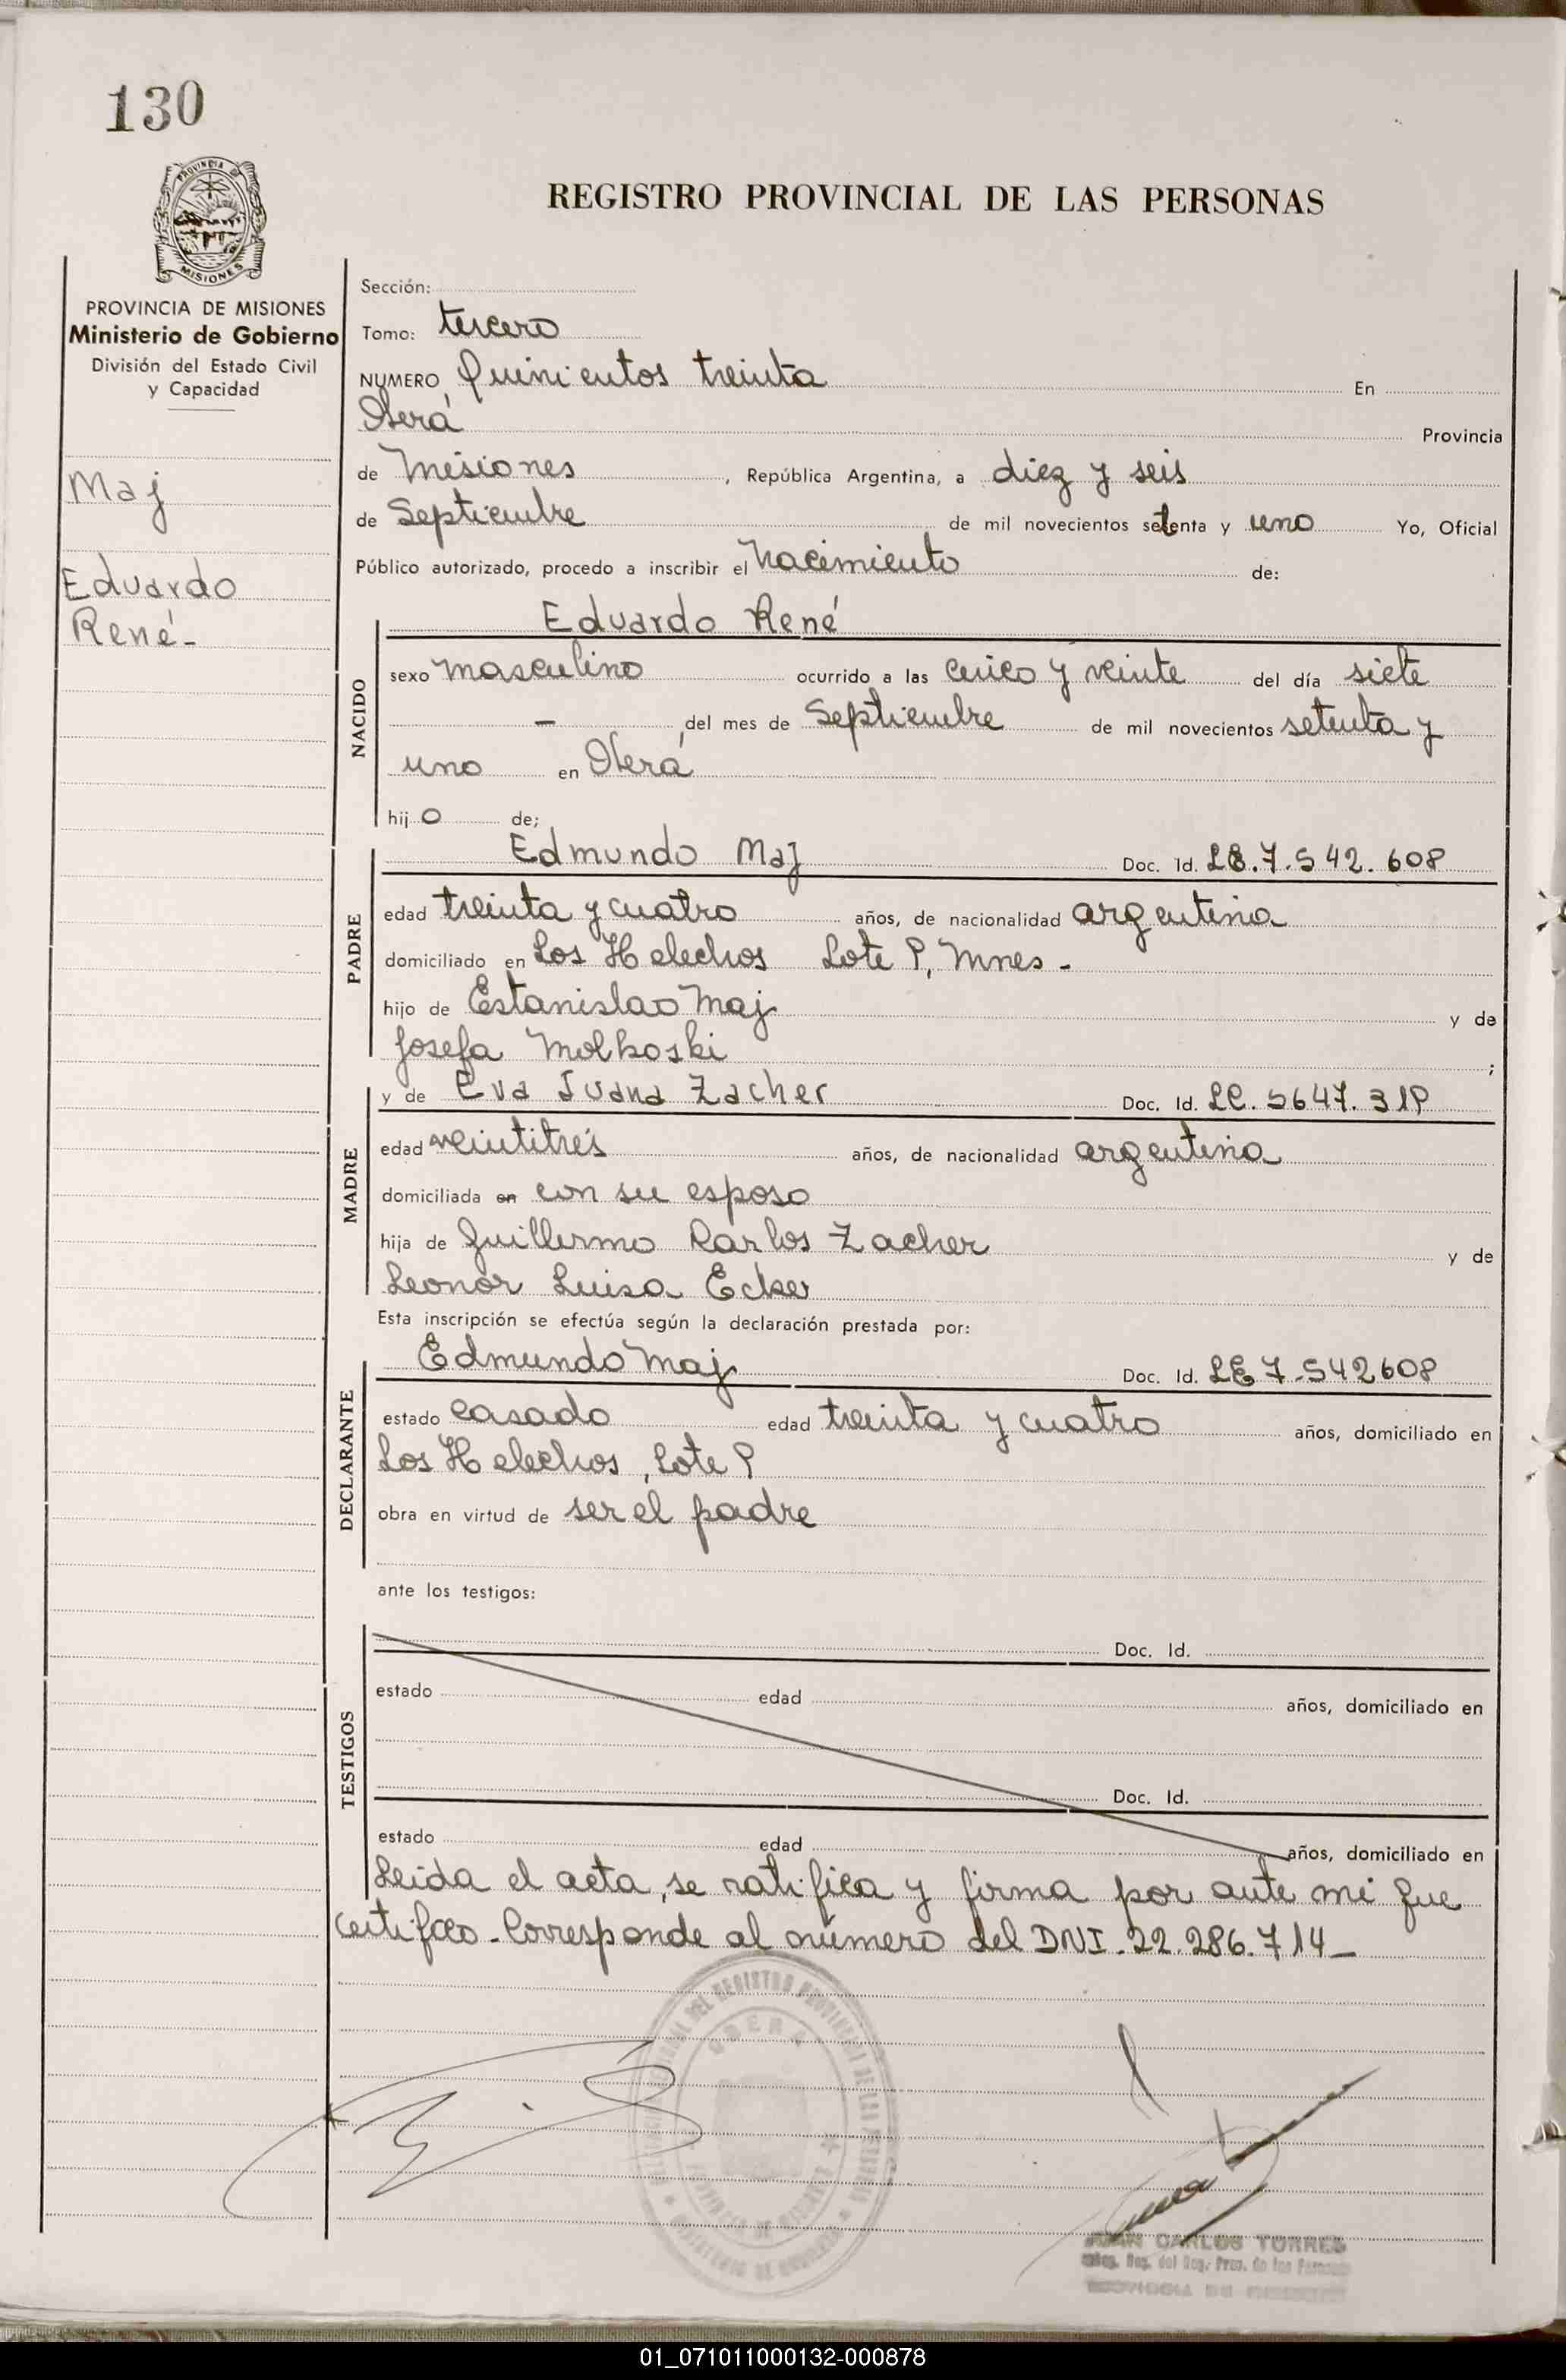 130
PROVINCIA DE
MISIONES
REGISTRO PROVINCIAL DE LAS PERSONAS
PROVINCIA DE MISIONES
Ministerio de Gobierno
División del Estado Civil
y Capacidad
Maj
Eduardo
René-
Sección:
Tomo: tercero
NUMERO Quinientos treinta En
Oberá Provincia
de Misiones, República Argentina, a diez y seis
de Septiembre de mil novecientos setenta y uno Yo, Oficial
Público autorizado, procedo a inscribir el nacimiento de:
Eduardo René
NACIDO
sexo masculino ocurrido a las cinco y veinte del día siete
- del mes de Septiembre de mil novecientos setenta y
uno en Oberá
hijo de;
PADRE
Edmundo Maj Doc. Id. LE.7.542.608
edad treinta y cuatro años, de nacionalidad argentina
domiciliado en Los Helechos Lote 8, Mnes-
hijo de Estanislao Maj y de
Josefa Molkoski ;
MADRE
y de Eva Juana Zacher Doc. Id. LC. 5647.318
edad veintitrés años, de nacionalidad argentina
domiciliada en con su esposo
hija de Guillermo Carlos Zacher y de
Leonor Luisa Ecker
Esta inscripción se efectúa según la declaración prestada por:
DECLARANTE
Edmundo Maj Doc. Id. LE 7.542608
estado casado edad treinta y cuatro años, domiciliado en
Los Helechos, Lote 8
obra en virtud de ser el padre
ante los testigos:
TESTIGOS
Doc. Id.
estado edad años, domiciliado en
Doc. Id.
estado edad años, domiciliado en
Leida el acta, se ratifica y firma por ante mi que
certifico-Corresponde al número del DNI-22.286.714-
OBERA
JUAN CARLOS TORRES
01_071011000132-000878